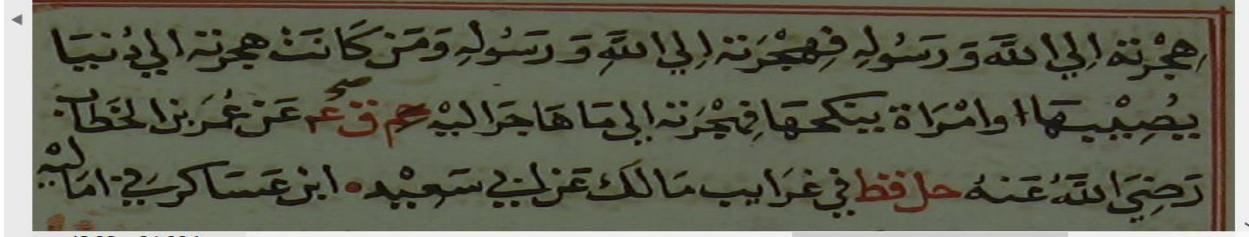 هِجْرَته اِلي الله وَ رَسُولِهِ فَهِجْرَته اِلي اللهِ وَ رَسُولِهِ وَمَن كَانَتْ هجرته الي دُنيَا
يُصِيْبهَا اوامْرَاة ينكحهَا فهِجْرَته الي مَا هَاجَرَ اليْهِ حم ق عه عَن عُمَر بن الخَطاب
رَضِيَ اللهُ عَنهُ حل قط في غرَايب مَالك عَن ابي سَعِيْد ابن عَسَاكر في اماليْهِ